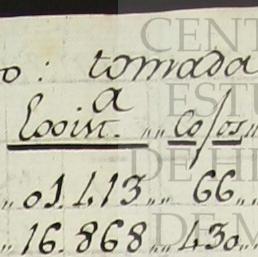 o: tomada
a
Exist. ,, Co/os ,,
,, 01.413 ,, 66 ,,
,, 16.868 ,, 430 ,,
CENT
ESTU
DE HI
DE M